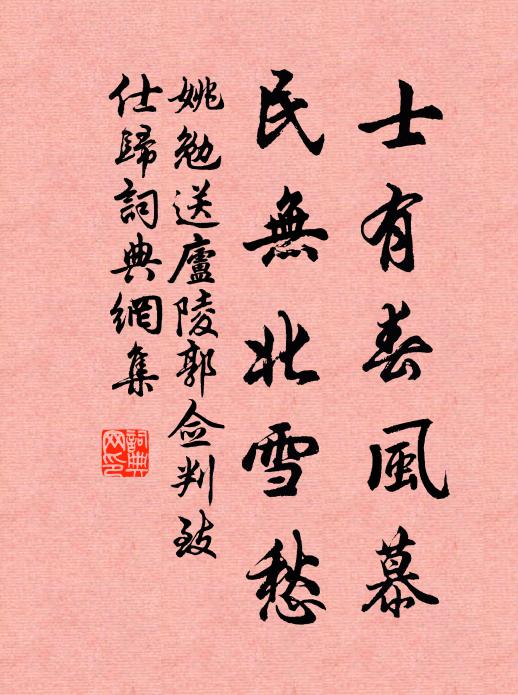 士有春風慕
民無北雪愁
姚勉送廬陵郭僉判致
仕歸詞典網集
詞典
网印